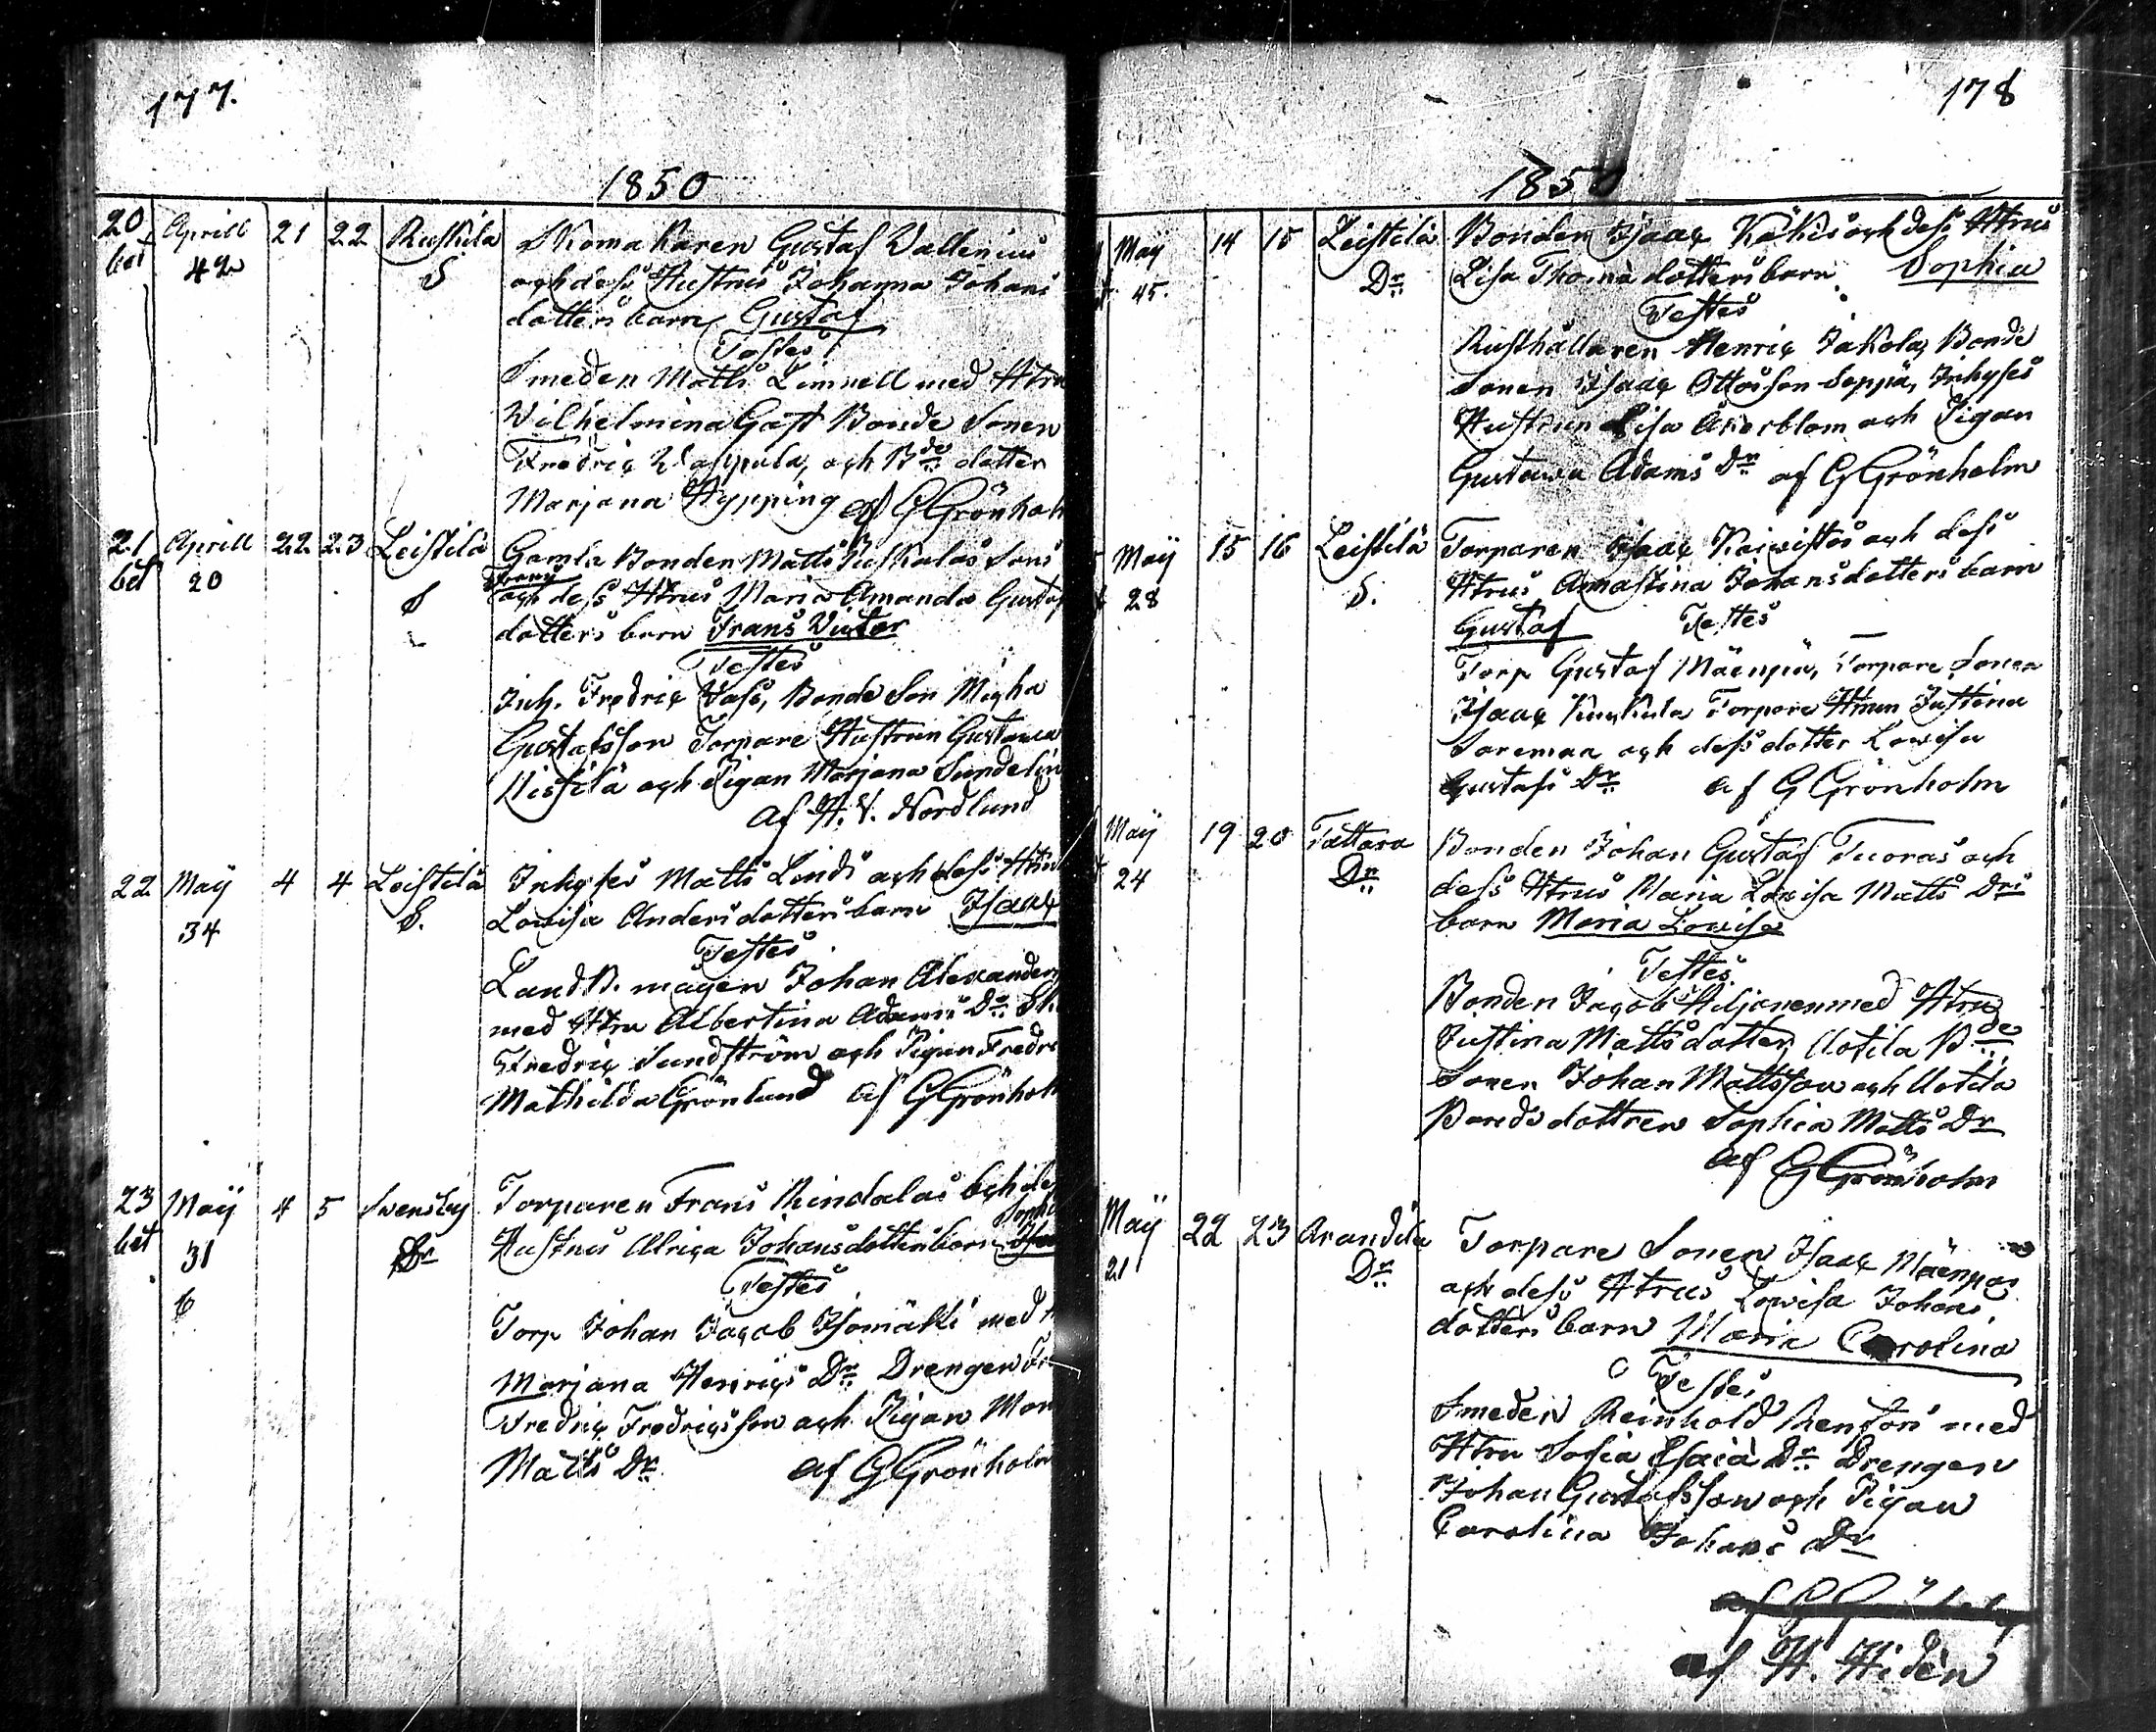 177.
1850
20 Aprill 21 22 Rustula Skomakaren Gustaf Wallenius
bet 42 S och dess Hustrus Johanna Johans
dotters barn Gustaf
Testes
Smeden Matts Limnell med Htru
Wilhelmina Gast Bonde Sonen
Fredric och Bde dotter
Marjana Hypping af G Grönhol
21 Aprill 22 23 Leistilä Gamla Bonden Matts Sons
bet 20 Frans
S och dess Htrus Maria Amanda Gustaf
dotters barn Frans Victor
Testes
Inh. Fredric Vass, Bonde Son Micha
Gustafsson Torpare Hustrun Gustava
och Pigan Marjana Sundelin
af H. V. Nordlund
22 Maij 4 4 Leistilä Inhyses Matts Linds och dess Htru
34 S. Lovisa Anders dotters barn Isaac
Testes
Johan Alexanders
med Htru Albertina Adams Dr
Fredric Sundström och Pigan Fredr
Mathilda Grönlund af G Grönhol
23 Maij 4 5 Svensby Torparen Frans Rindalas och de
bet 31 Dr Sophia
Hustrus Ulrica Johansdotters barn
6
Testes
Torp Johan Jacob Isomäkki med
Marjana Henrics Dr Drengen
Fredric Fredricsson och Pigan Mar
Matts Dr af G Grönholm
178
1850
Maij 14 15 Leistilä Bonden Isaac och dess Htrus
45. Dr Lisa Thomä dotters barn Sophia
Testes
Rusthållaren Henric Jakola, Bonde
Sonen Isaac Ottosson Seppä, Inhyses
Hustrun Lisa Åkerblom och Pigan
Gustava Adams Dr af G Grönholm
Maij 15 16 Leistilä Torparen Isaac Koivistos och dess
28 S. Htrus Annastina Johansdotters barn
Gustaf Testes
Torp Gustaf Mäenpä, Torpare Sonen
Isaac Torpare Htrun Justina
Soremaa och dess dotter Lovisa
Gustafs Dr af G Grönholm
Maij 19 20 Tattara Bonden Johan Gustaf Tuoras och
24 Dr dess Htrus Maria Lovisa Matts Drs
barn Maria Lovisa
Testes
Bonden Jacob Hiljanen med Htru
Justina Matts dotter, Uotila Bde
Sonen Johan Mattsson och Uotila
Bonds dottren Sophia Matts Dr
af G Grönholm
Maij 22 23 Arandila Torpare Sonen Isaac Mäenpäs
21 Dr och dess Htrus Lovisa Johans
dotters barn Maria Carolina
Testes
Smeden Reinhold Renfors med
Htru Sofia Esaiä Dr Drengen
Johan Gustafsson och Pigan
Carolina Johans Dr
af H. Hidén